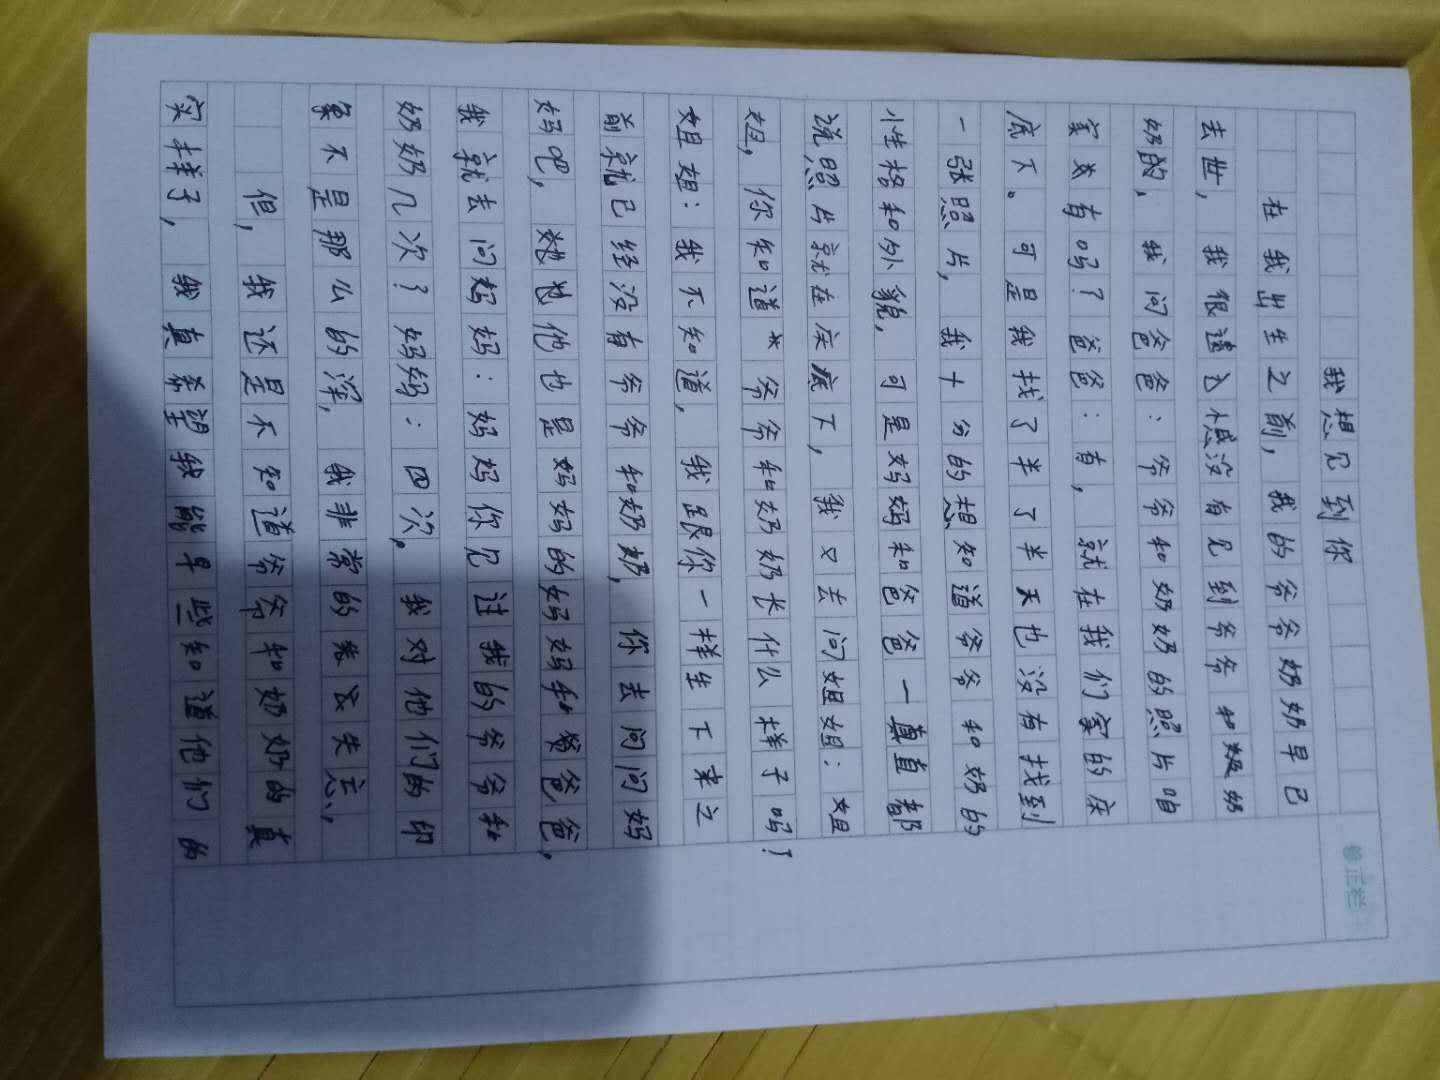 我想见到你
在我出生之前，我的爷爷奶奶早已
去世，我很遗憾没有见到爷爷和奶
奶的，我问爸爸：爷爷和奶奶的照片咱
家有吗？爸爸：有，就在我们家的床
底下。可是我找了半了半天也没有找到
一张照片，我十分的想知道爷爷和奶的
小生格和外貌，可是妈妈和爸爸一直都
说照片就在床底下，我又去问姐姐：姐
姐，你知道爷爷和奶奶长什么样子吗？
姐姐：我不知道，我跟你一样生下来之
前就已经没有爷爷和奶奶，你去问问妈
妈吧，他也是妈妈的妈妈和爸爸，
我就去问妈妈：妈妈你见过我的爷爷和
奶奶几次？妈妈：四次，我对他们的印
象不是那么的深，我非常的失忘，
但，我还是不知道爷爷和奶奶的真
实样子，我真希望我能早些知道他们的
修正栏